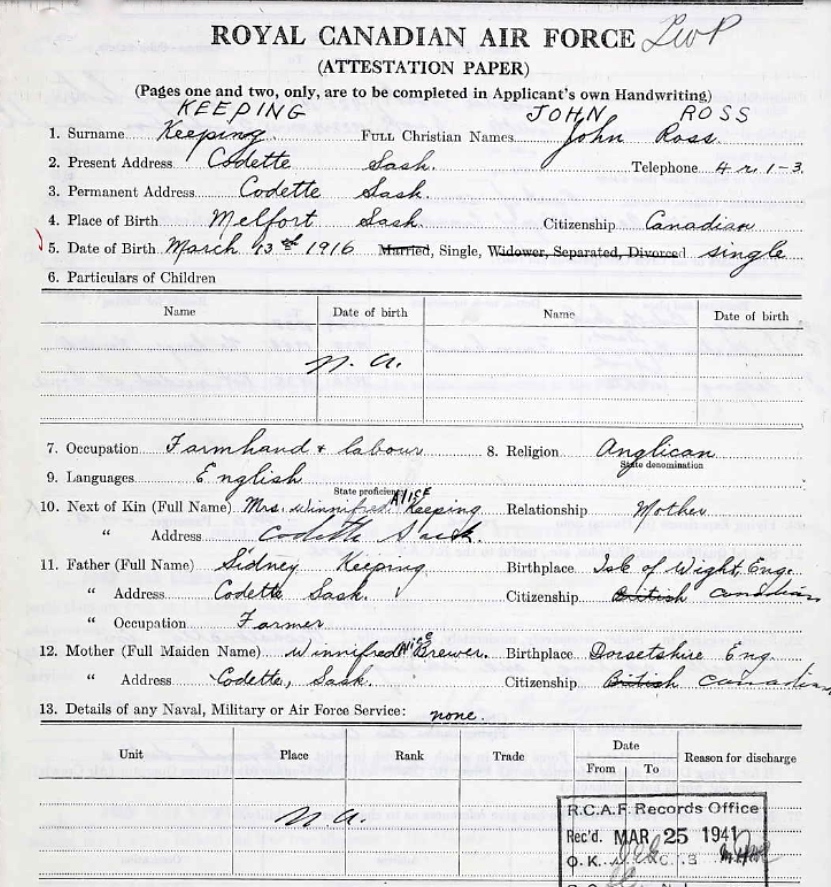 ROYAL CANADIAN AIR FORCE
(ATTESTATION PAPER)
(Pages one and two, only, are to be completed in Applicant's own Handwriting)
KEEPING JOHN ROSS
1. Surname Keeping FULL Christian Names John Ross
2. Present Address Codette Sask. Telephone 4 r. 1-3.
3. Permanent Address Codette Sask.
4. Place of Birth Melfort Sask. Citizenship Canadian
5. Date of Birth March 13th 1916 Married, Single, Widower, Separated, Divorced single
6. Particulars of Children
Name Date of birth Name Date of birth
n. a.
7. Occupation Farmhand + labour 8. Religion Anglican
State denomination
9. Languages English
State proficiency
ALICE
10. Next of Kin (Full Name) Mrs. Winnifred Keeping Relationship Mother
" Address Codette Sask.
11. Father (Full Name) Sidney Keeping Birthplace Isle of Wight, Eng.
" Address Codette Sask. Citizenship British Canadian
" Occupation Farmer
12. Mother (Full Maiden Name) Winnifred Alice Brewer. Birthplace Dorsetshire Eng.
" Address Codette, Sask. Citizenship British Canadian
13. Details of any Naval, Military or Air Force Service: none.
Unit Place Rank Trade Date Reason for discharge
From To
n. a.
R.C.A.F. Records Office
Rec'd. MAR 25 1941
O.K.